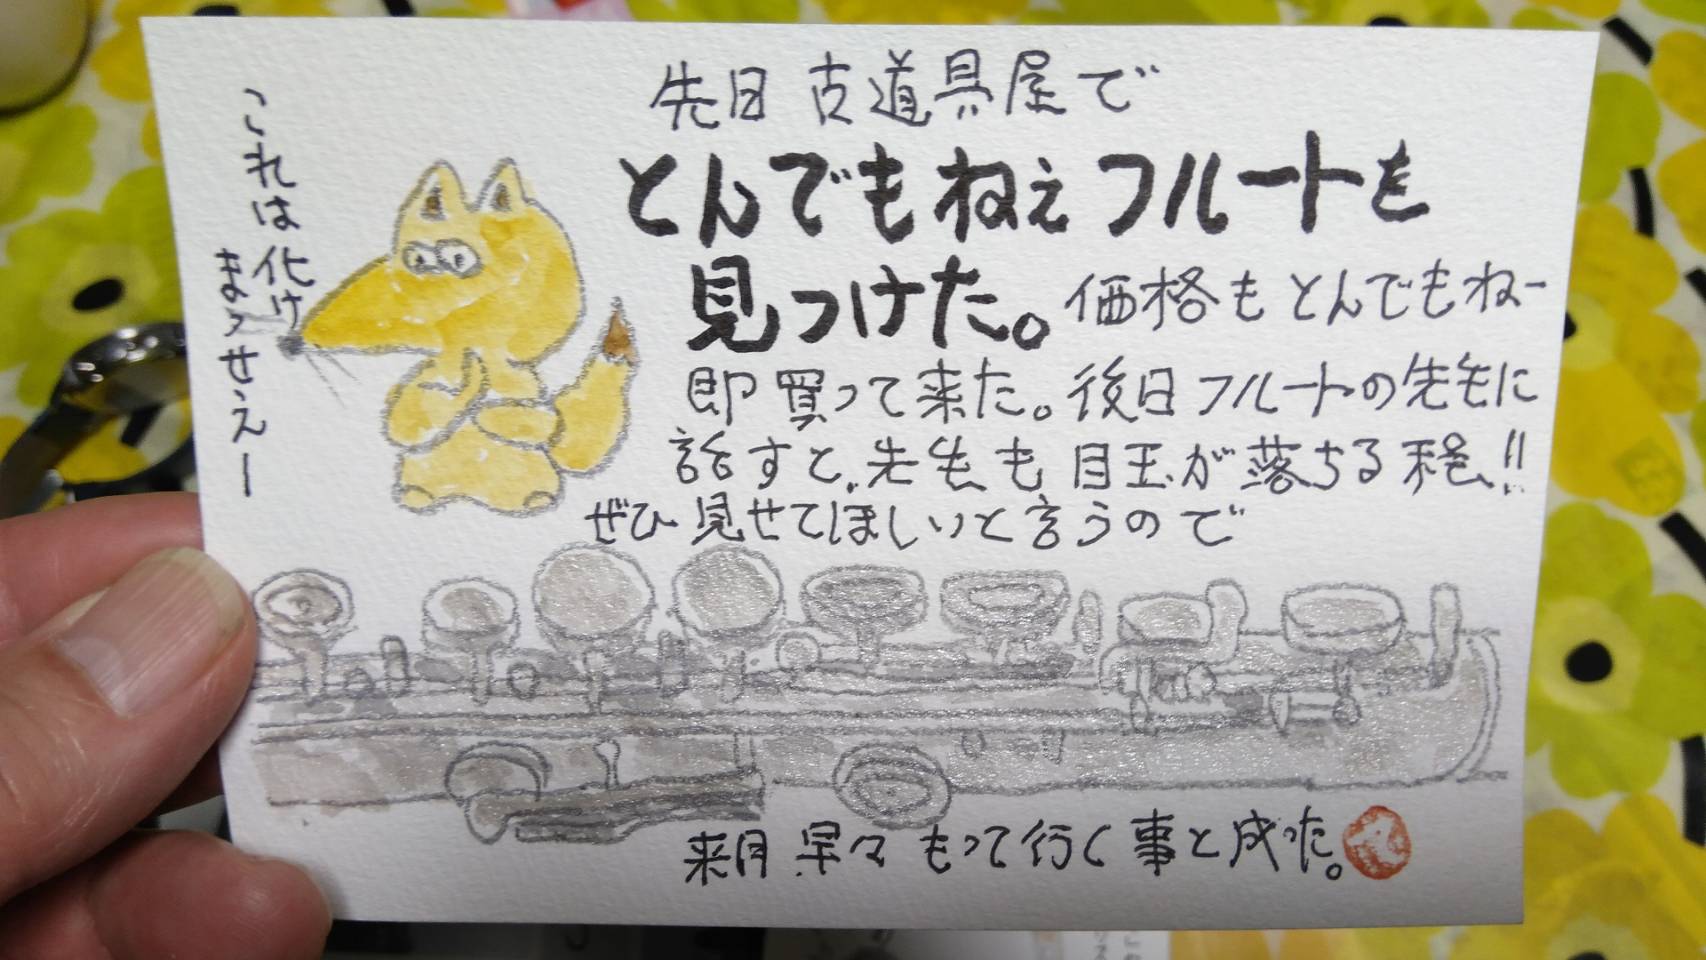 先日 古道具屋で
とんでもねえフルートを
見つけた。価格もとんでもねー
即買って来た。後日フルートの先生に
話すと、先生も目玉が落ちる程!!
ぜひ見せてほしいと言うので
来月早々もって行く事と成った。
これは化け
まっせえー